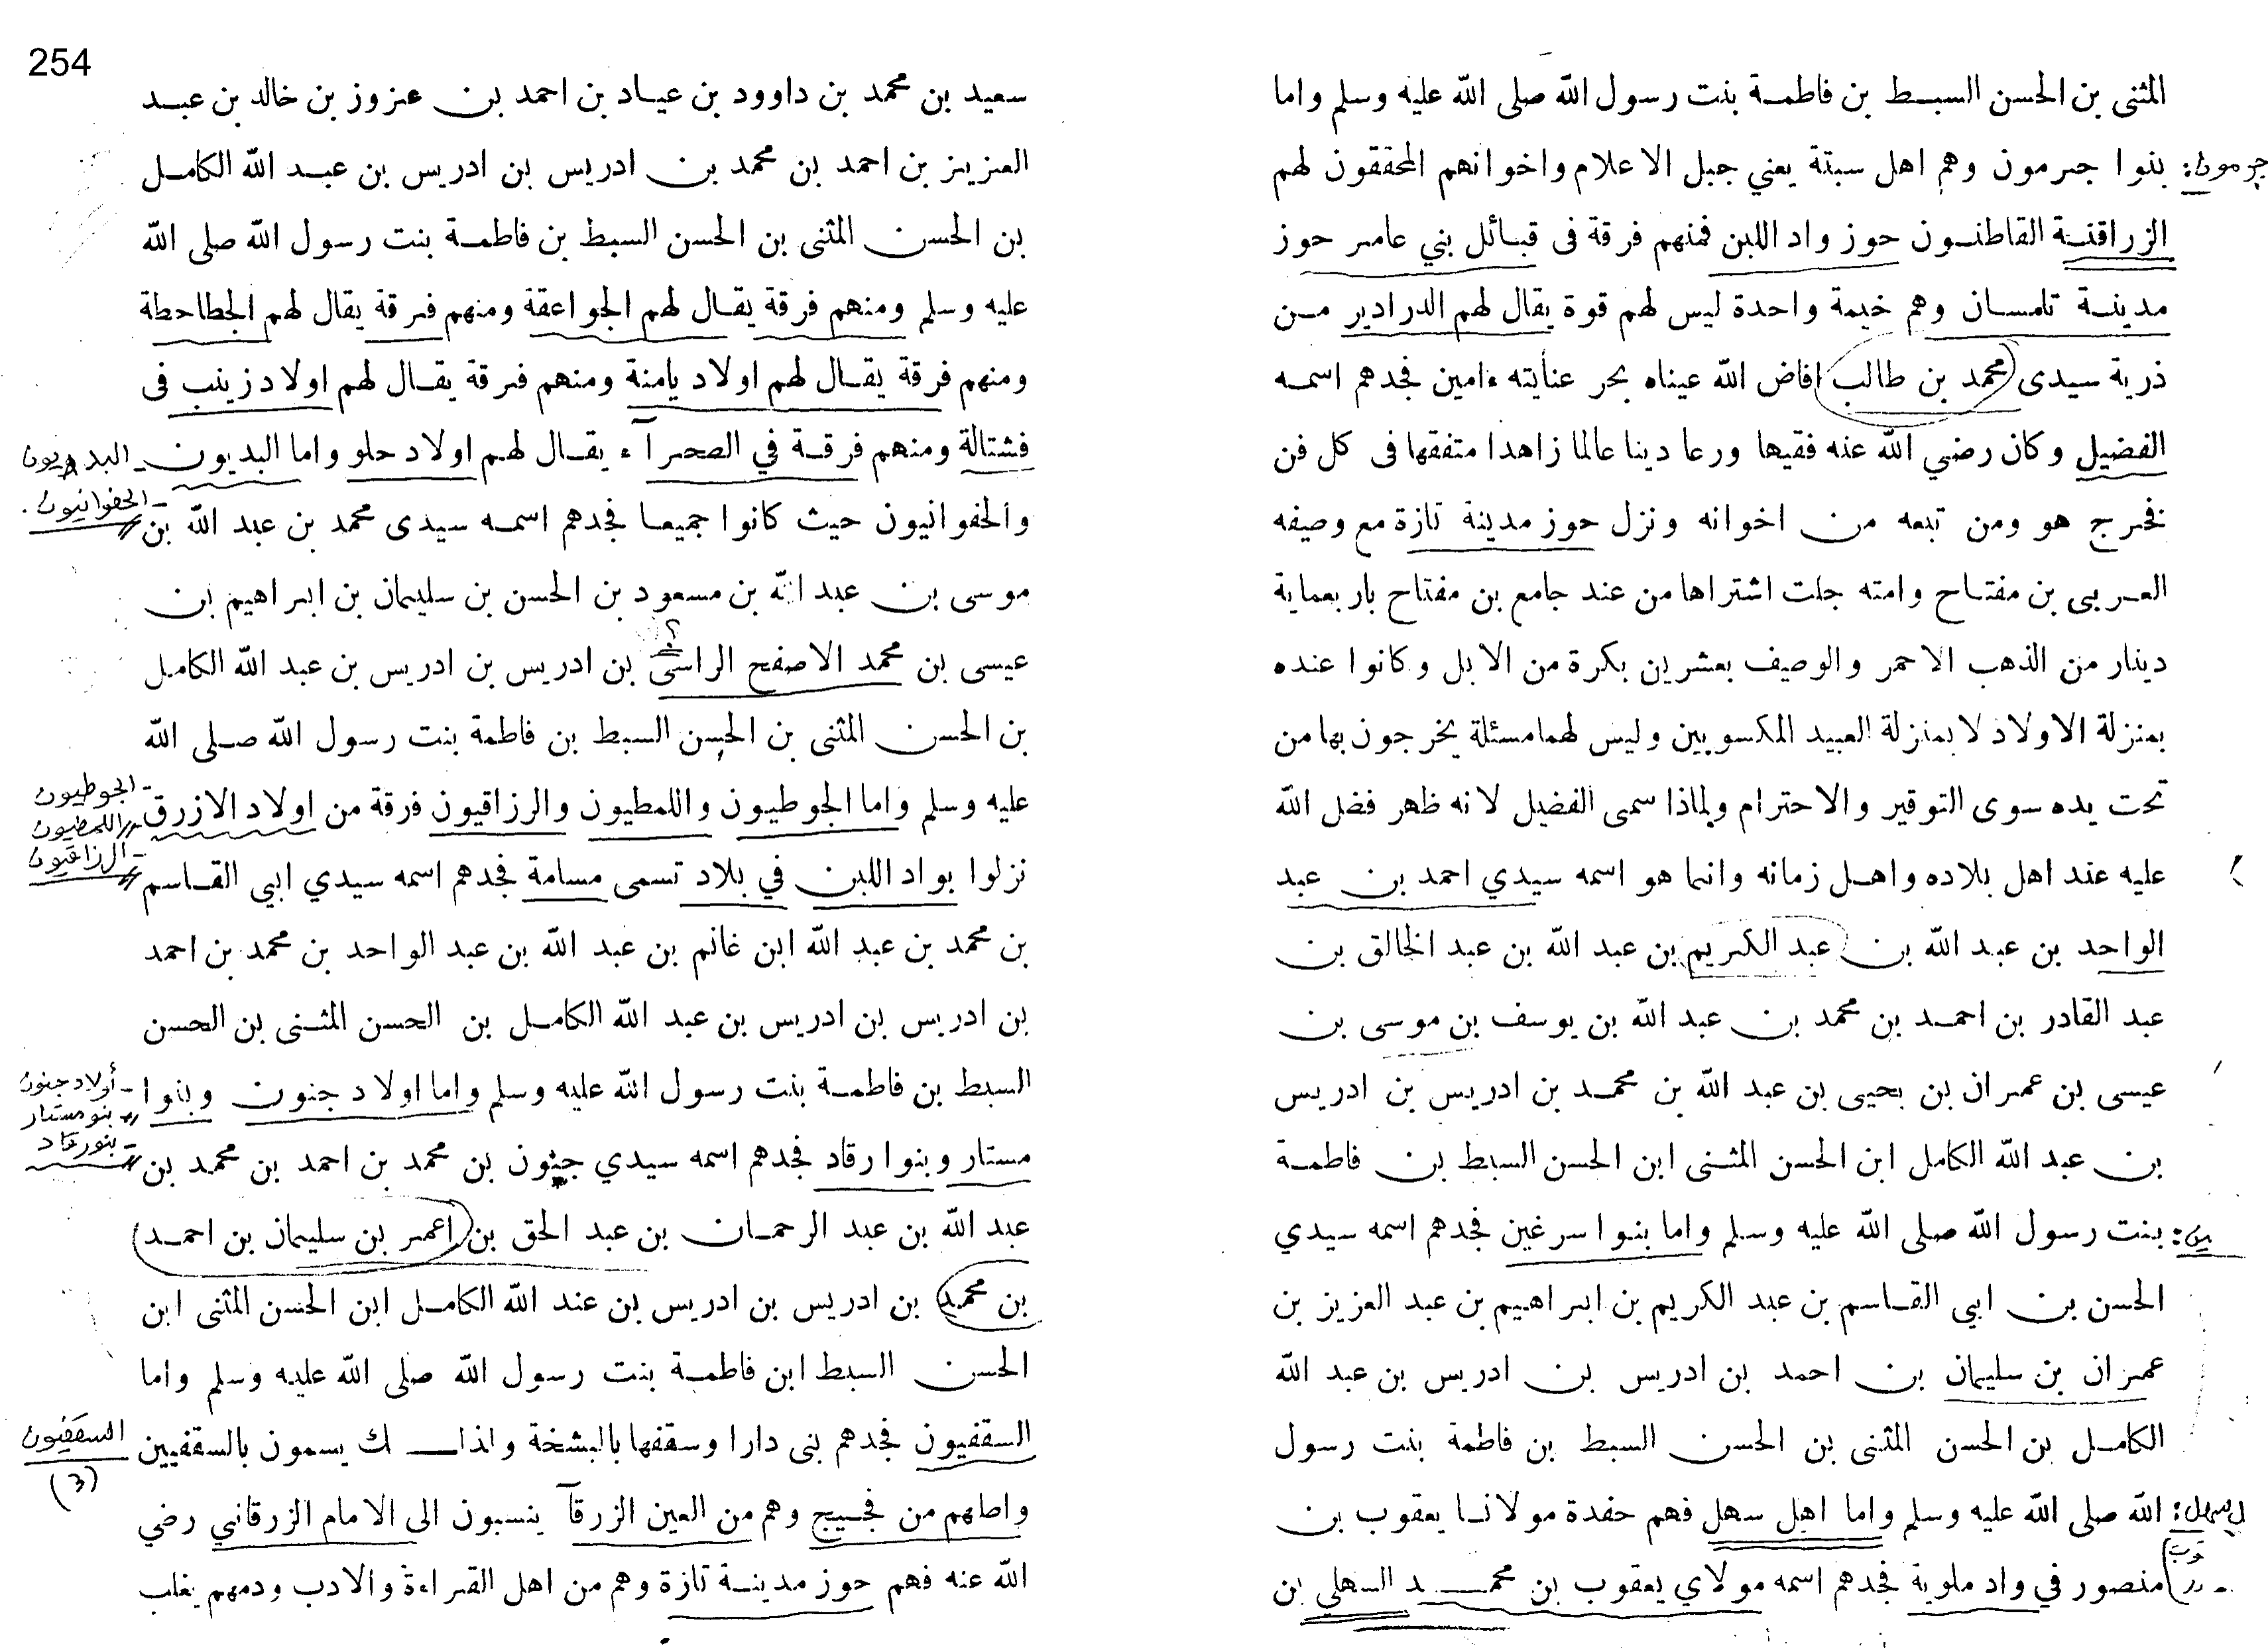 المثنى بن الحسن السبط بن فاطمة بنت رسول الله صلى الله عليه وسلم واما
جرمون: بنوا جرمون وهم اهل سبتة يعني جبل الاعلام واخوانهم المحققون لهم
الزراقنة القاطنون حوز واد اللبن فمنهم فرقة فى قبائل بني عامر حوز
مدينة تلمسان وهم خيمة واحدة ليس لهم قوة يقال لهم الدرادير من
ذرية سيدى محمد بن طالب افاض الله عيناه بحر عنايته ءامين فجدهم اسمه
الفضيل وكان رضي الله عنه فقيها ورعا دينا عالما زاهدا متفقها فى كل فن
فخرج هو ومن تبعه من اخوانه ونزل حوز مدينة تازة مع وصيفه
العربى بن مفتاح وامته جلت اشتراها من عند جامع بن مفتاح باربعماية
دينار من الذهب الاحمر والوصيف بعشرين بكرة من الابل وكانوا عنده
بمنزلة الاولاد لا بمنزلة العبيد المكسوبين وليس لهما مسئلة يخرجون بها من
تحت يده سوى التوقير والاحترام ولماذا سمى الفضيل لانه ظهر فضل الله
عليه عند اهل بلاده واهل زمانه وانما هو اسمه سيدي احمد بن عبد
الواحد بن عبد الله بن عبد الكريم بن عبد الله بن عبد الخالق بن
عبد القادر بن احمد بن محمد بن عبد الله بن يوسف بن موسى بن
عيسى بن عمران بن يحيى بن عبد الله بن محمد بن ادريس بن ادريس
بن عبد الله الكامل ابن الحسن المثنى ابن الحسن السبط بن فاطمة
ين: بنت رسول الله صلى الله عليه وسلم واما بنوا سرغين فجدهم اسمه سيدي
الحسن بن ابي القاسم بن عبد الكريم بن ابراهيم بن عبد العزيز بن
عمران بن سليمان بن احمد بن ادريس بن ادريس بن عبد الله
الكامل بن الحسن المثنى بن الحسن السبط بن فاطمة بنت رسول
سهل: الله صلى الله عليه وسلم واما اهل سهل فهم حفدة مولانا يعقوب بن
منصور في واد ملوية فجدهم اسمه مولاي يعقوب بن محمد السهلي بن
254
سعيد بن محمد بن داوود بن عياد بن احمد بن عزوز بن خالد بن عبد
العزيز بن احمد بن محمد بن ادريس بن ادريس بن عبد الله الكامل
بن الحسن المثنى بن الحسن السبط بن فاطمة بنت رسول الله صلى الله
عليه وسلم ومنهم فرقة يقال لهم الجواعقة ومنهم فرقة يقال لهم الجطاحطة
ومنهم فرقة يقال لهم اولاد يامنة ومنهم فرقة يقال لهم اولاد زينب فى
فشتالة ومنهم فرقة في الصحرآء يقال لهم اولاد حلو واما البديون - البدويون
والحفوانيون حيث كانوا جميعا فجدهم اسمه سيدى محمد بن عبد الله بن - الحفوانيون
موسى بن عبد الله بن مسعود بن الحسن بن سليمان بن ابراهيم بن
عيسى بن محمد الاصفح الراسى بن ادريس بن ادريس بن عبد الله الكامل
بن الحسن المثنى بن الحسن السبط بن فاطمة بنت رسول الله صلى الله
عليه وسلم واما الجوطيون واللمطيون والرزاقيون فرقة من اولاد الازرق
- الجوطيون
- اللمطيون
- الرزاقيون
نزلوا بواد اللبن في بلاد تسمى مسامة فجدهم اسمه سيدي ابي القاسم
بن محمد بن عبد الله ابن غانم بن عبد الله بن عبد الواحد بن محمد بن احمد
بن ادريس بن ادريس بن عبد الله الكامل بن الحسن المثنى بن الحسن
السبط بن فاطمة بنت رسول الله عليه وسلم واما اولاد جنون وبنوا
- أولاد جنون
- بنو مستار
- بنو رقاد
مستار وبنوا رقاد فجدهم اسمه سيدي جنون بن محمد بن احمد بن محمد بن
عبد الله بن عبد الرحمان بن عبد الحق بن اعمر بن سليمان بن احمد
بن محمد بن ادريس بن ادريس بن عند الله الكامل ابن الحسن المثنى ابن
الحسن السبط ابن فاطمة بنت رسول الله صلى الله عليه وسلم واما
السقفيون فجدهم بنى دارا وسقفها بالبشخة ولذالك يسمون بالسقفيين
السقفيون
(3)
واصلهم من فجيج وهم من العين الزرقآ ينسبون الى الامام الزرقاني رضي
الله عنه فهم حوز مدينة تازة وهم من اهل القراءة والادب ودمهم يغلب